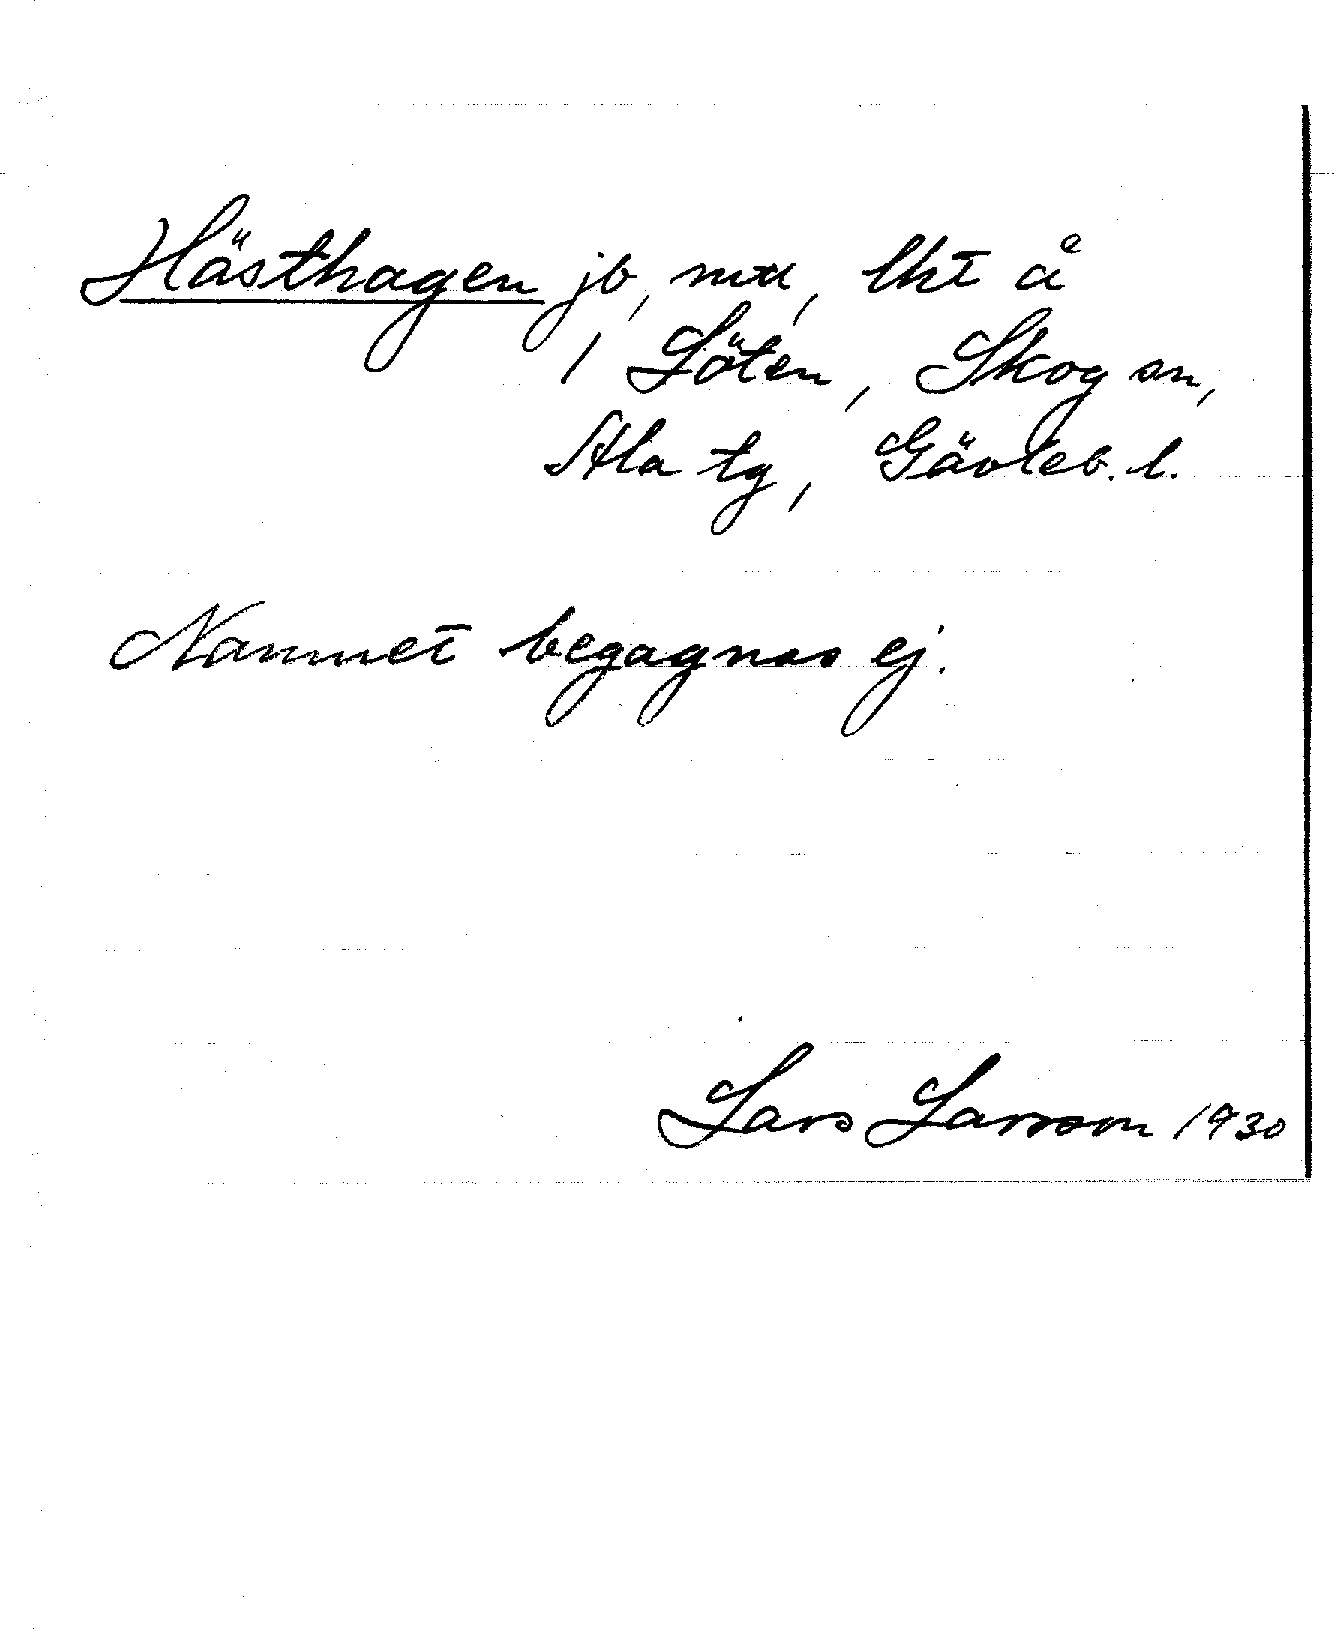 Hästhagen jb, mtl, lht å
1 Löten, Skog sn,
Ala tg, Gävleb. l.
Namnet begagnas ej.
Lars Larsson 1930